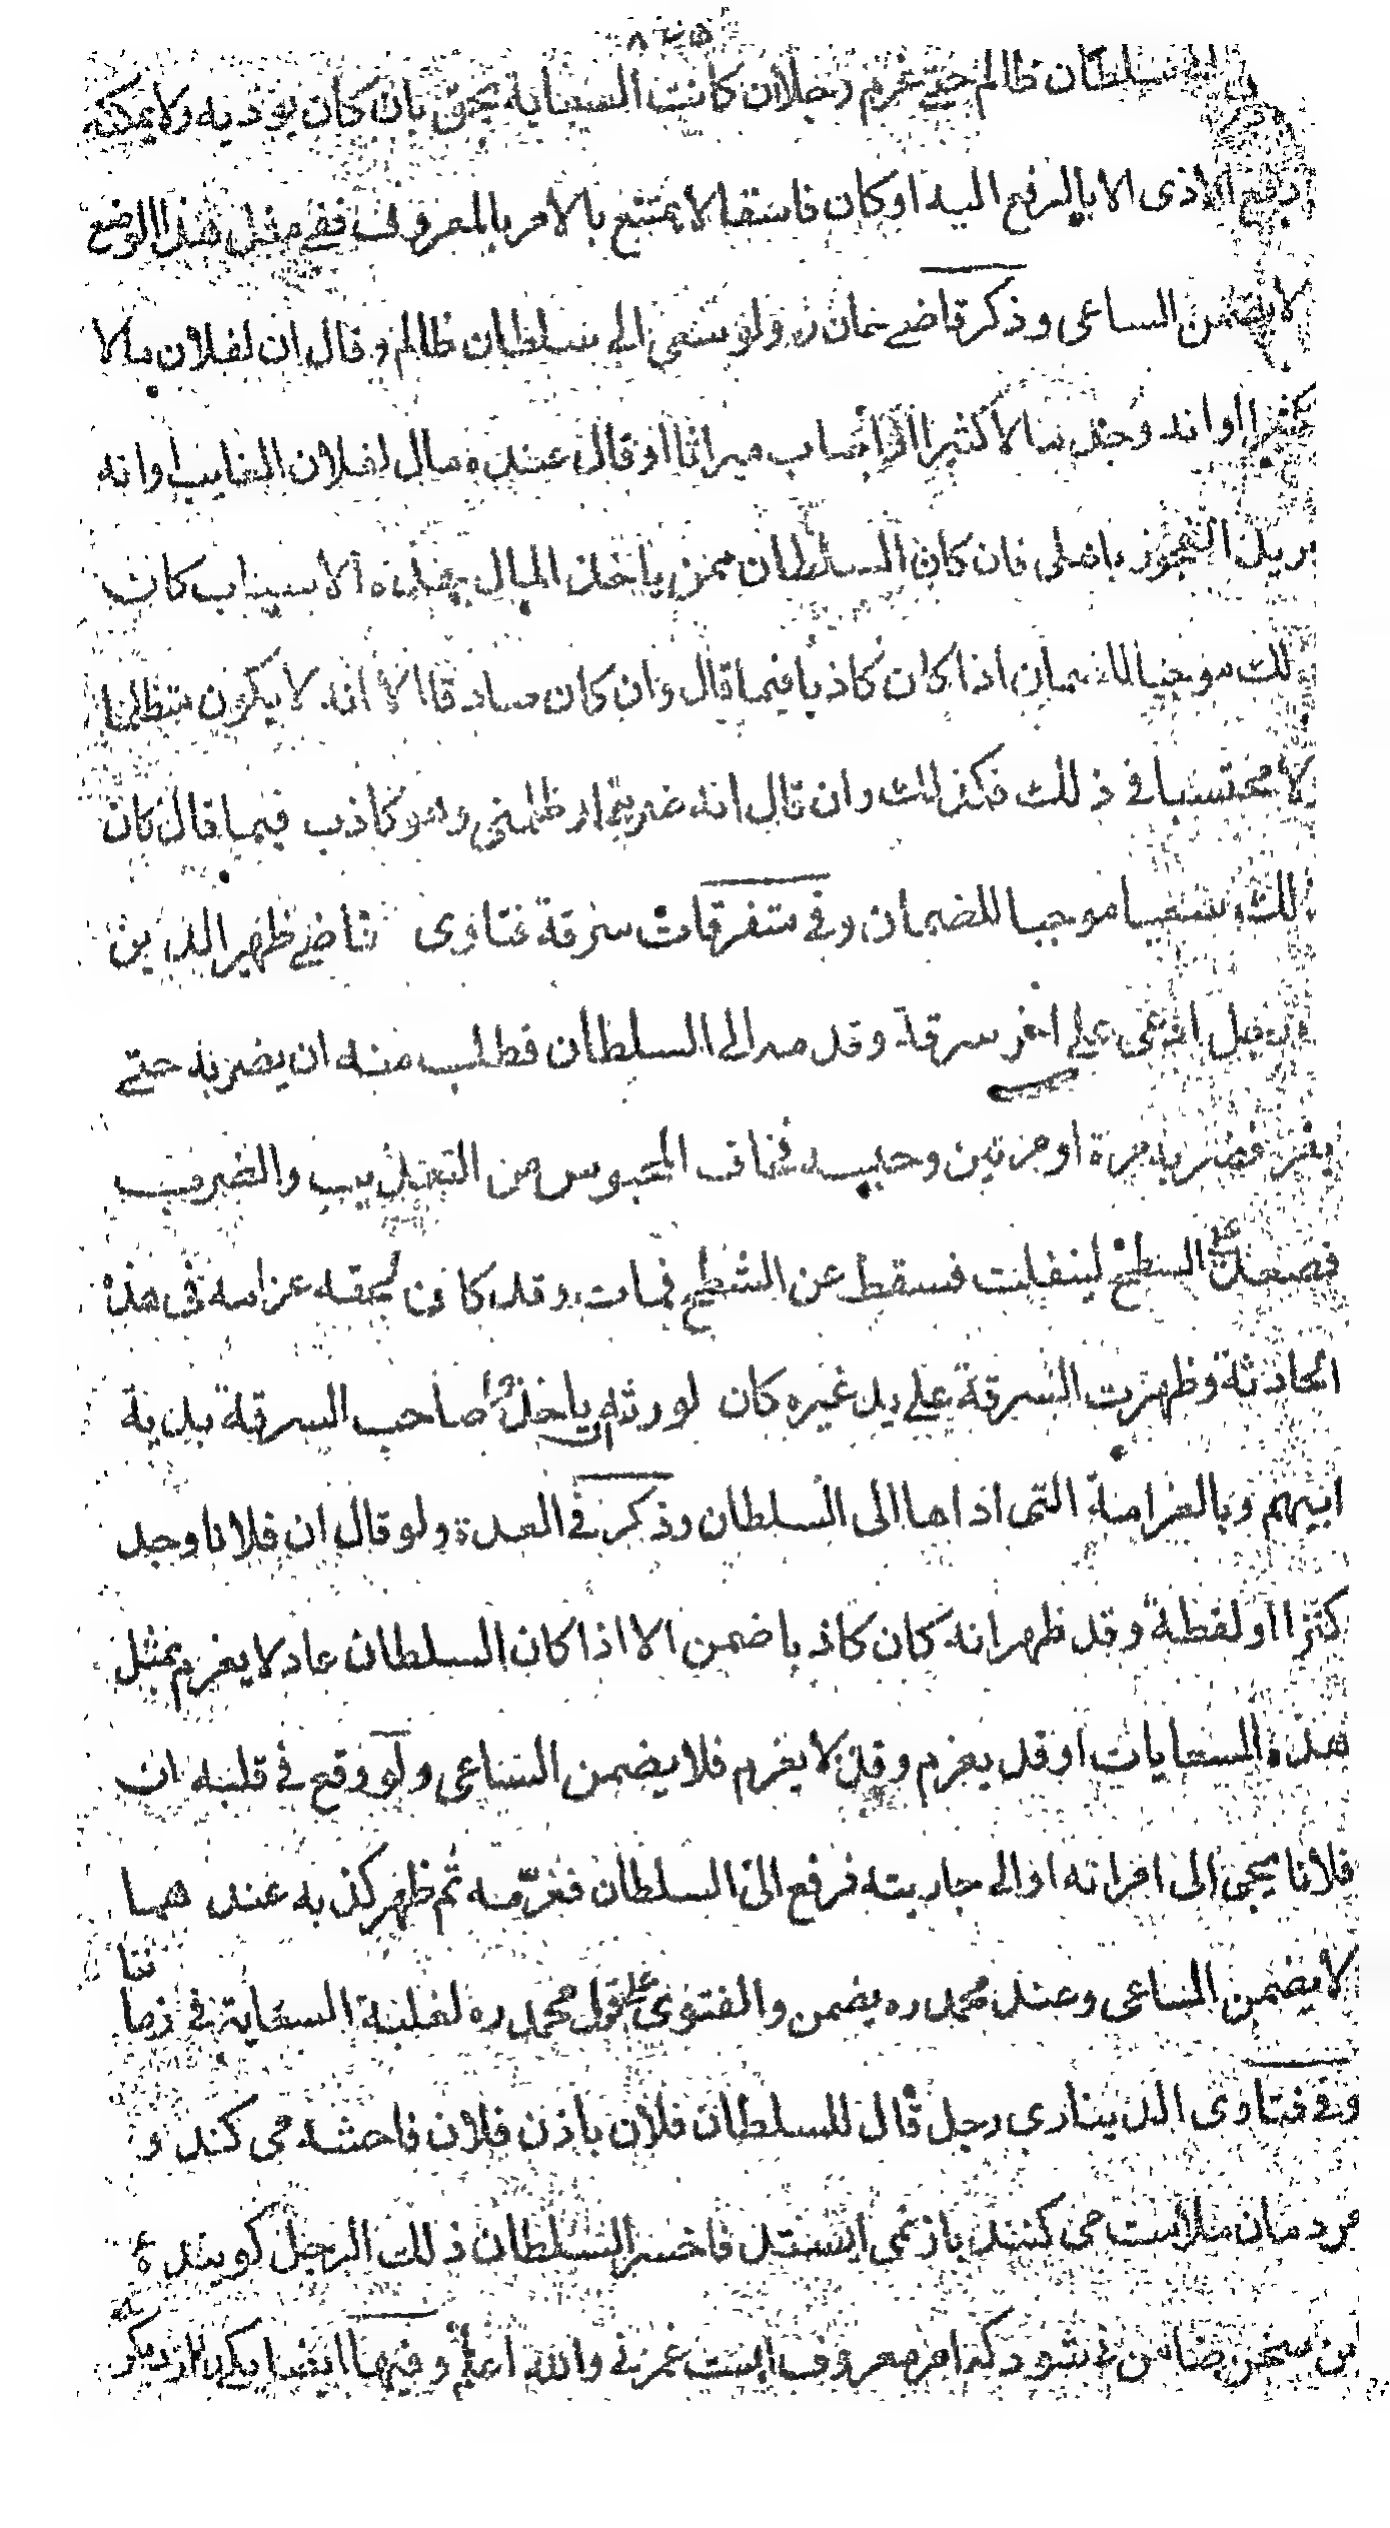 السلطان ظالم حتى غرم رجلا ان كانت السعاية بحق بان كان يوذيه ولا يمكنه
دفع الاذى الا بالرفع اليه او كان فاسقا لا يمتنع بالامر بالمعروف ففي مثل هذا الوضع
لا يضمن الساعى وذكر قاضي خان ره ولو سعى الى سلطان ظالم و قال ان لفلان مالا
كثيرا او انه وجد مالا كثيرا او اصاب ميراثا او قال عنده مال لفلان الغايب او انه
يريد الفجوز باهلى فان كان السلطان ممن ياخذ المال بهذه الاسباب كان
لك موجبا للضمان اذا كان كاذبا فيما قال وان كان صادقا الا انه لا يكون متظلما
لا محتسبا في ذلك فكذلك وان قال انه ضربني او ظلمنى وهو كاذب فيما قال كان
لك سعيا موجبا للضمان وفي متفرقات سرقة فتاوى قاضي ظهير الدين
ادعى على اخر سرقة وقد مه الى السلطان فطلب منه ان يضربه حتى
يقر فضربه مرة او مرتين وحبسه فخاف المحبوس من التعذيب والضرب
فصعد السطح لينفلت فسقط عن السطح فمات وقد كان لحقه غرامه فى هذه
الحادثة وظهرت السرقة على يد غيره كان لورثه ان ياخذوا صاحب السرقة بدية
ابيهم وبالغرامة التى اداها الى السلطان وذكر في العدة ولو قال ان فلانا وجد
كنزا او لقطة وقد ظهر انه كان كاذبا ضمن الا اذا كان السلطان عاد لا يغرم بمثل
هذه السعايات او قد يغرم وقد لا يغرم فلا يضمن الساعى ولو وقع في قلبه ان
فلانا يجى الى امراته او الى جاريته فرفع الى السلطان فغرمه ثم ظهر كذبه عند هما
لا يضمن الساعى وعند محمد ره يضمن والفتوى على قول محمد ره لغلبة السعاية في زماننا
وفي فتاوى الدينارى رجل قال للسلطان فلان باذن فلان فاحشه مى كند و
مردمان ملامت مى كنند باز نمى ايستد فاخسر السلطان ذلك الرجل كوينده
اين سخن ضامن نشود كه امر معروف است غمز نى والله اعلم وفيها ايضا يكى از ديكر